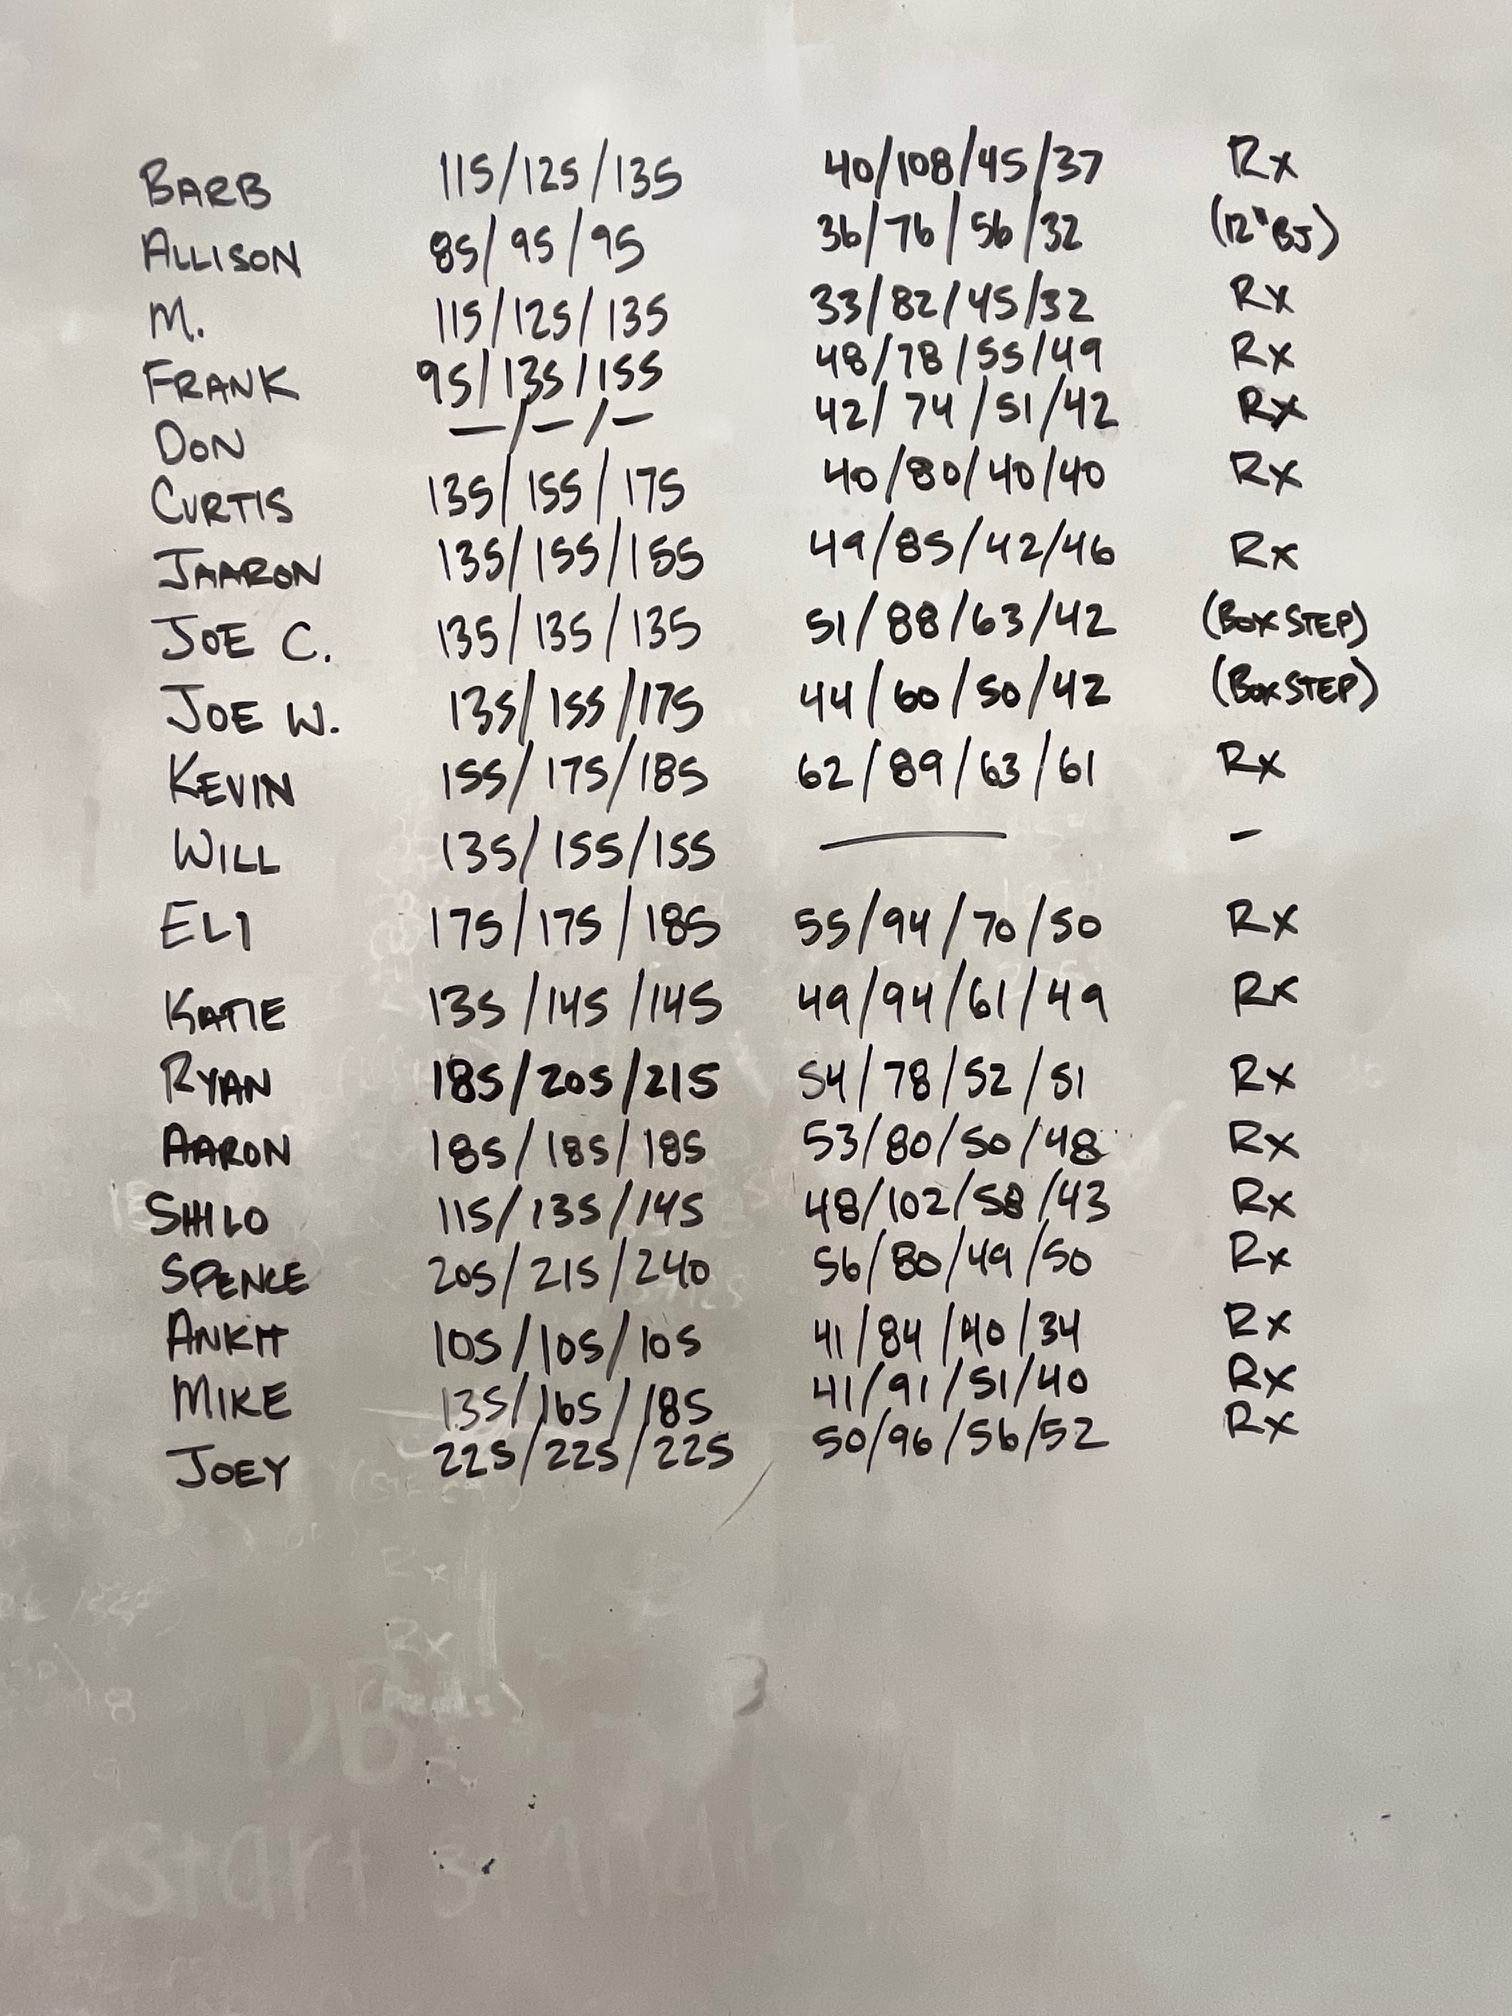 BARB 115/125/135 40/108/45/37 Rx
ALLISON 85/95/95 36/76/56/32 (12"BJ)
M. 115/125/135 33/82/45/32 Rx
FRANK 95/135/155 48/78/55/49 Rx
DON —/—/— 42/74/51/42 Rx
CURTIS 135/155/175 40/80/40/40 Rx
JAARON 135/155/155 49/85/42/46 Rx
JOE C. 135/135/135 51/88/63/42 (BOX STEP)
JOE W. 135/155/175 44/60/50/42 (BOX STEP)
KEVIN 155/175/185 62/89/63/61 Rx
WILL 135/155/155 — –
ELI 175/175/185 55/94/70/50 Rx
KATIE 135/145/145 49/94/61/49 Rx
RYAN 185/205/215 54/78/52/51 Rx
AARON 185/185/185 53/80/50/48 Rx
SHILO 115/135/145 48/102/58/43 Rx
SPENCE 205/215/240 56/80/49/50 Rx
ANKIT 105/105/105 41/84/40/34 Rx
MIKE 135/165/185 41/91/51/40 Rx
JOEY 225/225/225 50/96/56/52 Rx
Rx
Rx
DB